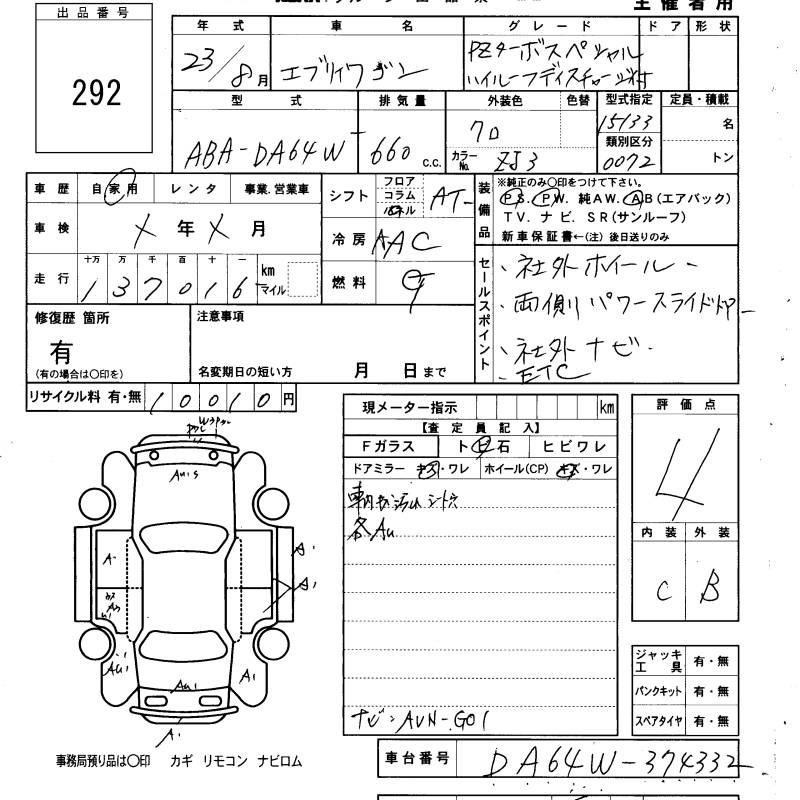 主催者用
出品番号
292
年式 車名 グレード ドア 形状
23/8月 エブリィワゴン PZターボスペシャル
ハイルーフディスチャージ
型式 排気量 外装色 色替 型式指定 定員・積載
ABA-DA64W 660 c.c. クロ 15133 名
類別区分
カラーNo. ZJ3 0072 トン
車歴 自家用 レンタ 事業.営業車
シフト フロア コラム パネル AT
装備品 ※純正のみ○印をつけて下さい。
P.S. P.W. 純A.W. A.B(エアバック)
T.V. ナビ. S.R(サンルーフ)
新車保証書←(注) 後日送りのみ
車検 X年X月
冷房 AAC
走行 十万 万 千 百 十 一
137016 km マイル
燃料 G
セールスポイント
・社外ホイール
・両側パワースライドドア
・社外ナビ・
・ETC
修復歴 箇所
有
(有の場合は○印を)
注意事項
名変期日の短い方 月 日まで
リサイクル料 有・無 10010円
現メーター指示 km
【査定員記入】
Fガラス ト ビ 石 ヒビワレ
ドアミラー キズ・ワレ ホイール(CP) キズ・ワレ
車内 シート
各AU
ナビ:AVN-G01
評価点
4
内装 外装
C B
AU5
A1
A1
A1
AU1
AU1
A1
A1
ジャッキ工具 有・無
パンクキット 有・無
スペアタイヤ 有・無
事務局預り品は○印 カギ リモコン ナビロム
車台番号 DA64W-374332